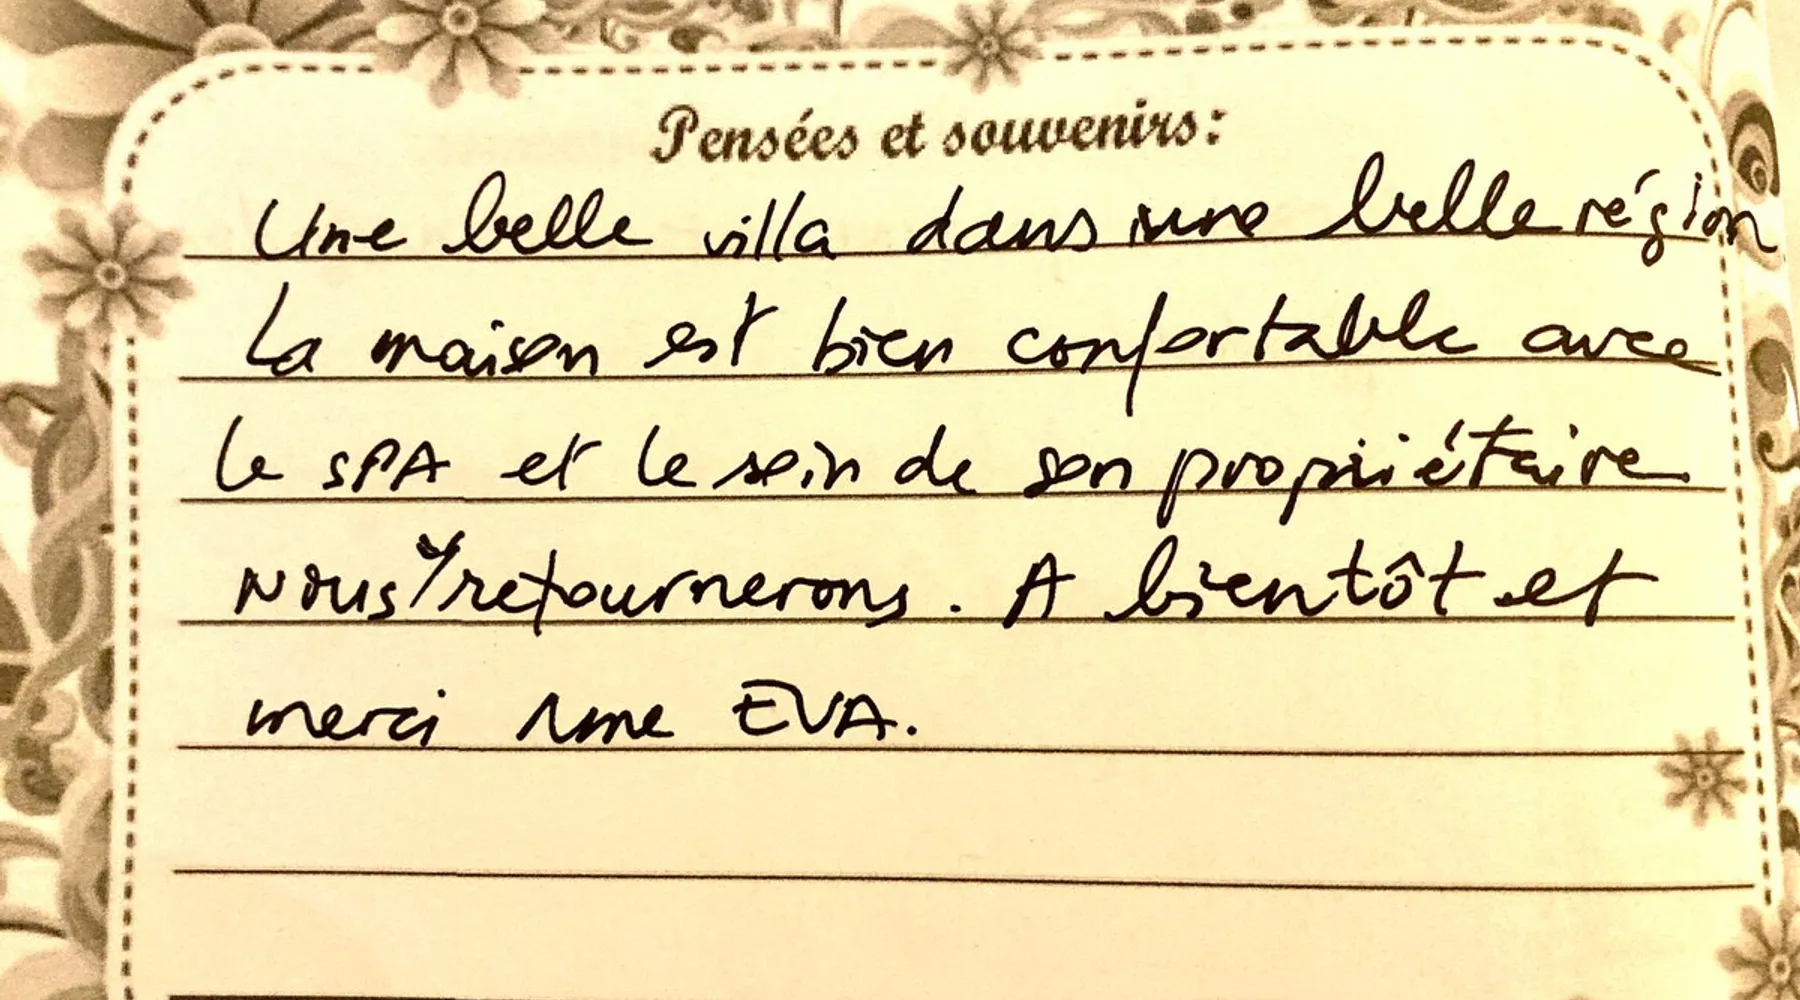 Pensées et souvenirs:
Une belle villa dans une belle région
La maison est bien confortable avec
le SPA et le soin de son propriétaire
Nous y retournerons. A bientôt et
merci Mme EVA.